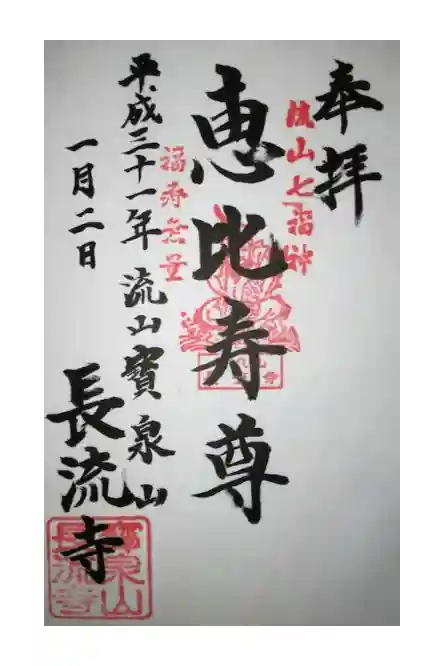 奉拝
流山七福神
恵比寿尊
福寿無量
平成三十一年 流山 寳泉山
一月二日
長流寺
寳泉山
長流寺